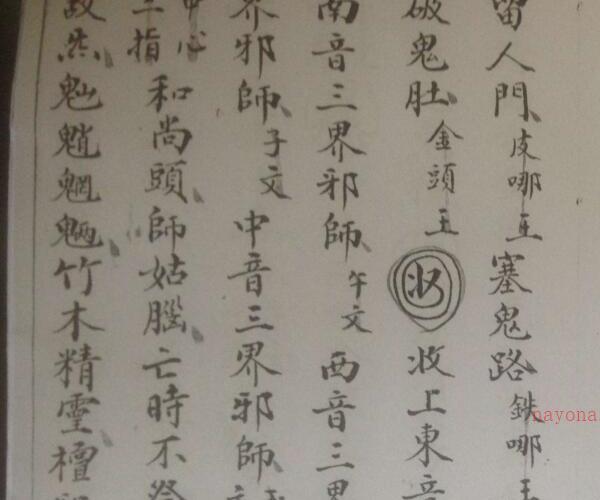 留人門皮哪王塞鬼路鉄哪王
破鬼肚金頭王收收上東音
南音三界邪師午文西音三界
界邪師子文中音三界邪師
中心
三指和尚頭師姑腦亡時不
故炁魈魍魎竹木精霊檀
nayona.